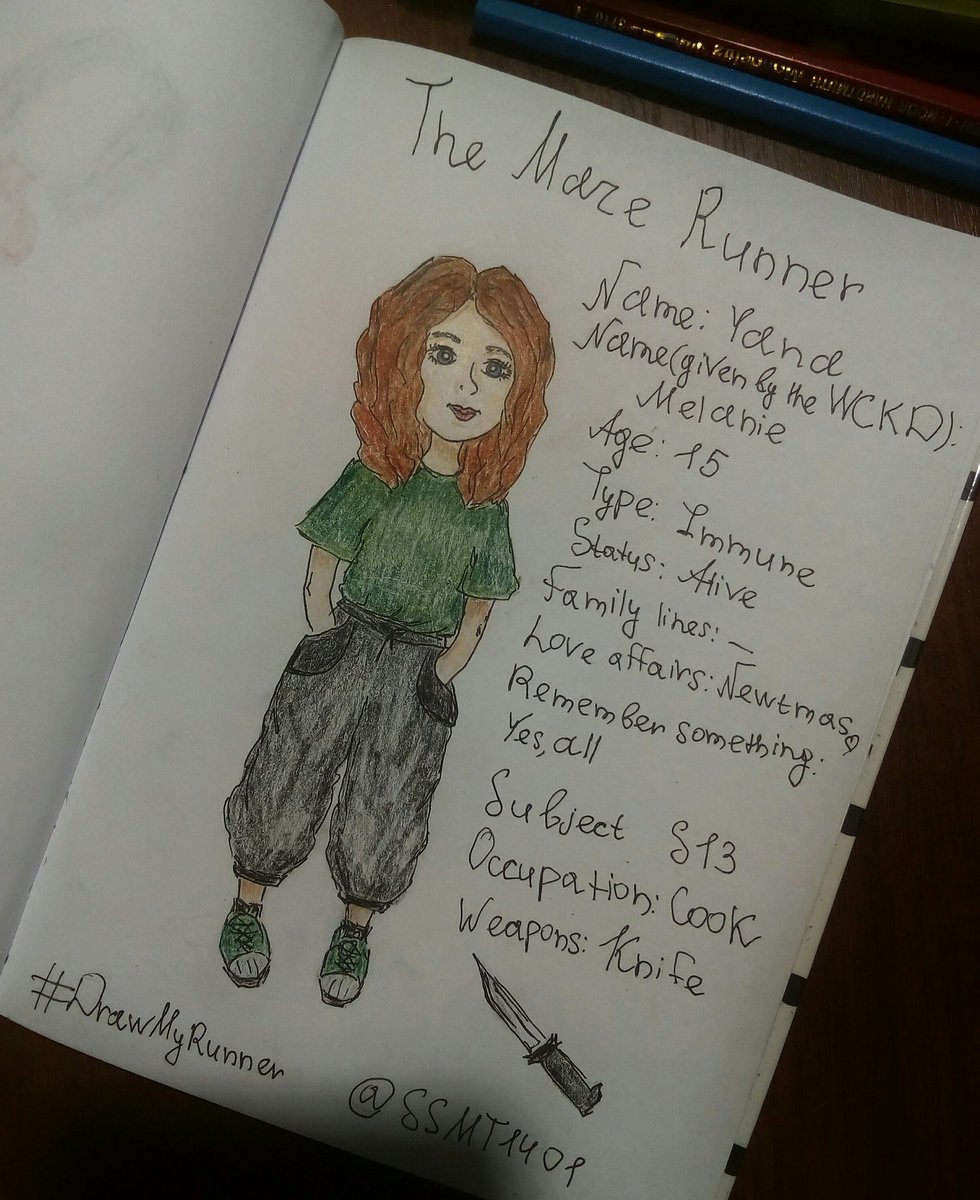 The Maze Runner
Name: Yana
Name(given by the WCKD):
Melanie
Age: 15
Type: Immune
Status: Alive
Family lines: –
Love affairs: Newtmas♡
Remember something:
Yes, all
Subject S13
Occupation: Cook
Weapons: Knife
#DrawMyRunner
@SSMT1401